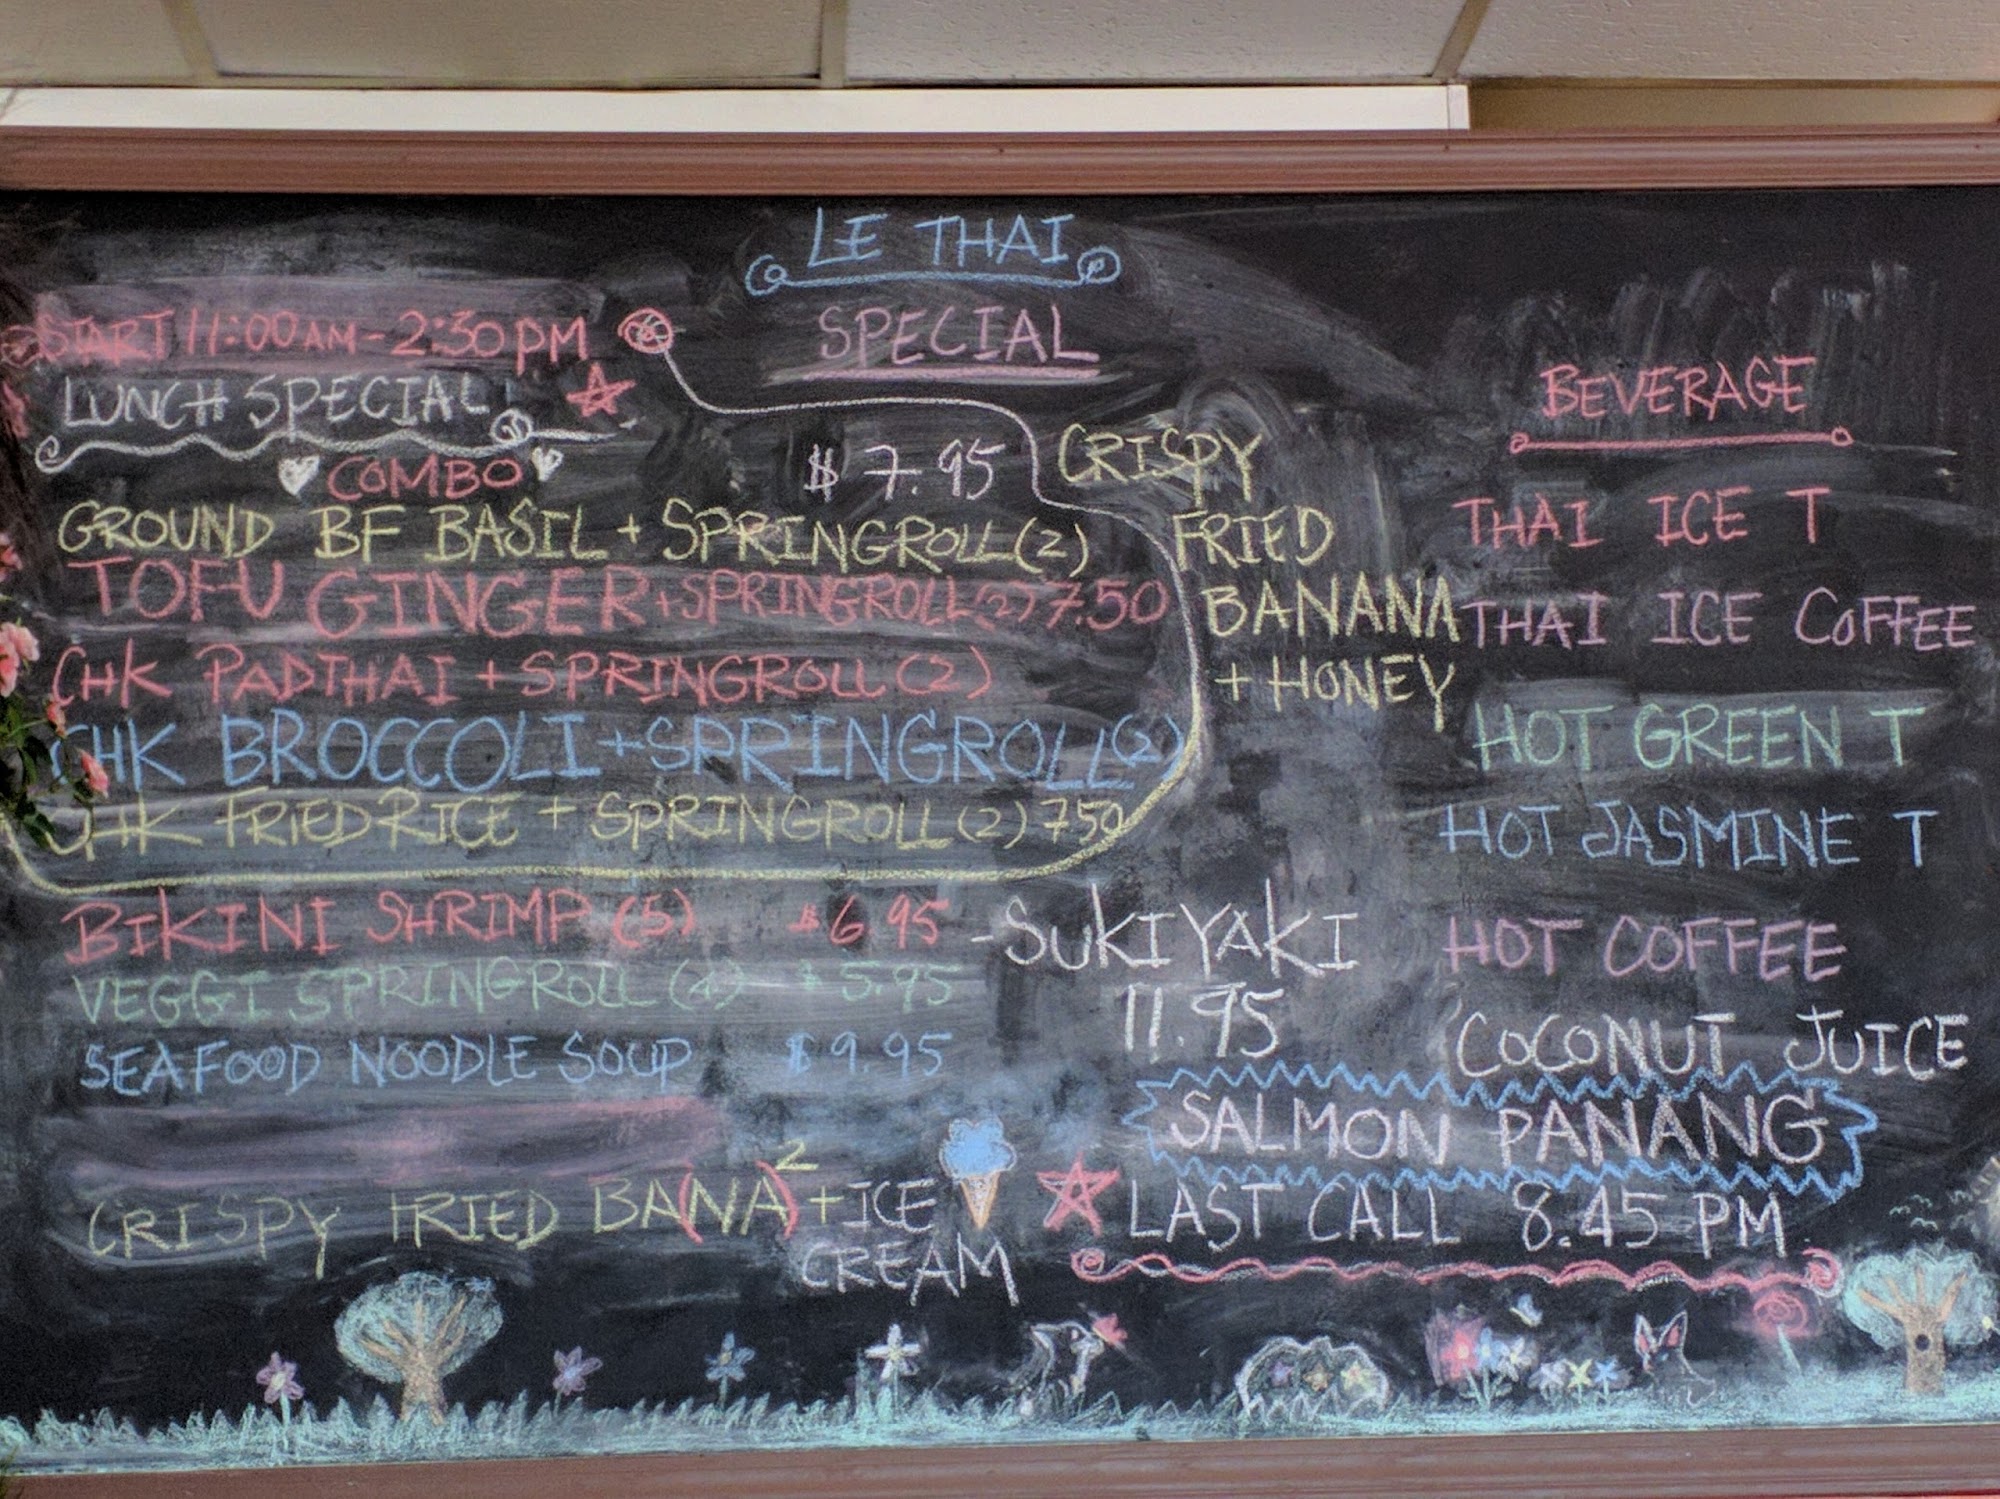 LE THAI
SPECIAL
START 11:00AM-2:30PM
LUNCH SPECIAL
COMBO
$ 7.95
GROUND BF BASIL + SPRINGROLL (2)
TOFU GINGER + SPRINGROLL (2) 7.50
CHK PADTHAI + SPRINGROLL (2)
CHK BROCCOLI + SPRINGROLL (2)
CHK FRIED RICE + SPRINGROLL (2) 750
BIKINI SHRIMP (5) $6 95
VEGGI SPRINGROLL (4) $5.95
SEAFOOD NOODLE SOUP $9.95
CRISPY FRIED BA(NA)2 + ICE
CREAM
CRISPY
FRIED
BANANA
+ HONEY
-SUKIYAKI
11.95
BEVERAGE
THAI ICE T
THAI ICE COFFEE
HOT GREEN T
HOT JASMINE T
HOT COFFEE
COCONUT JUICE
SALMON PANANG
LAST CALL 8.45 PM